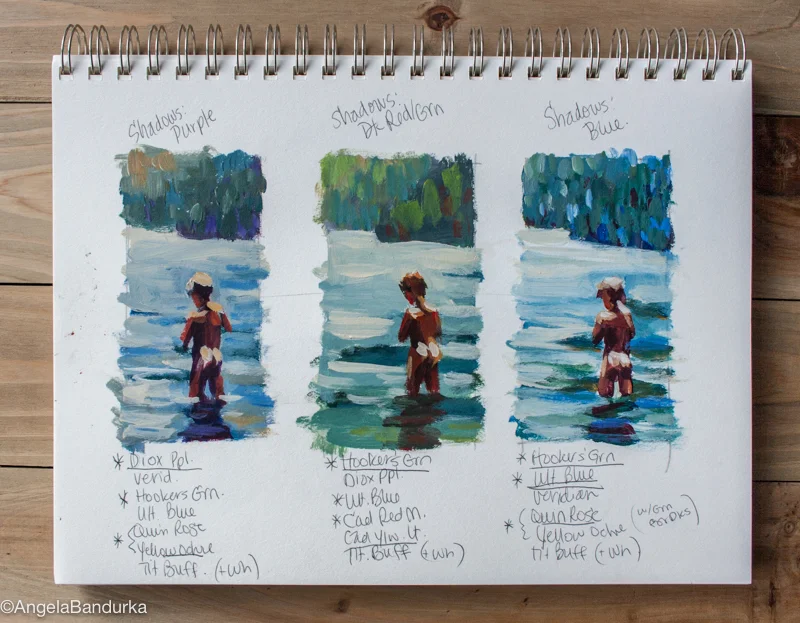 Shadows:
Purple
Shadows:
Dk Red/Grn
Shadows:
Blue.
* Diox Ppl.
Verid.
* Hookers Grn.
Ult Blue
Quin Rose
* { Yellow Ochre
Tit Buff. (+Wh)
* Hookers Grn
Diox Ppl
* Ult. Blue
* Cad Red M.
Cad Ylw. Lt.
Tit. Buff (+Wh)
* Hookers Grn
* Ult Blue
Veridian
* { Quin Rose
Yellow Ochre
(w/Grn
for DKS)
Tit Buff (+Wh)
©AngelaBandurka